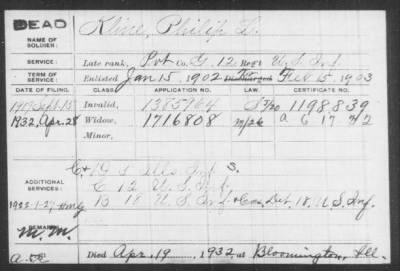 DEAD
NAME OF SOLDIER: Kline, Philip D.
SERVICE: Late rank, Pvt Co. G, 12 Reg't U.S. Inf.
TERM OF SERVICE: Enlisted Jan 15, 1902 Discharged Feb 15, 1903
DATE OF FILING. CLASS. APPLICATION NO. LAW. CERTIFICATE NO.
1919 Sept. 15 Invalid, 1385964 1198839
1932, Apr. 28 Widow, 1716808 m/26 a 6 17 32
Minor,
ADDITIONAL SERVICES: Inf. S.
E 12 U.S. Inf.
1922-1-27 B 18 U.S. Inf. & Cas. Det. 18, U.S. Inf.
REMARKS:
M. M.
Died Apr. 19, 1932, at Bloomington, Ill.